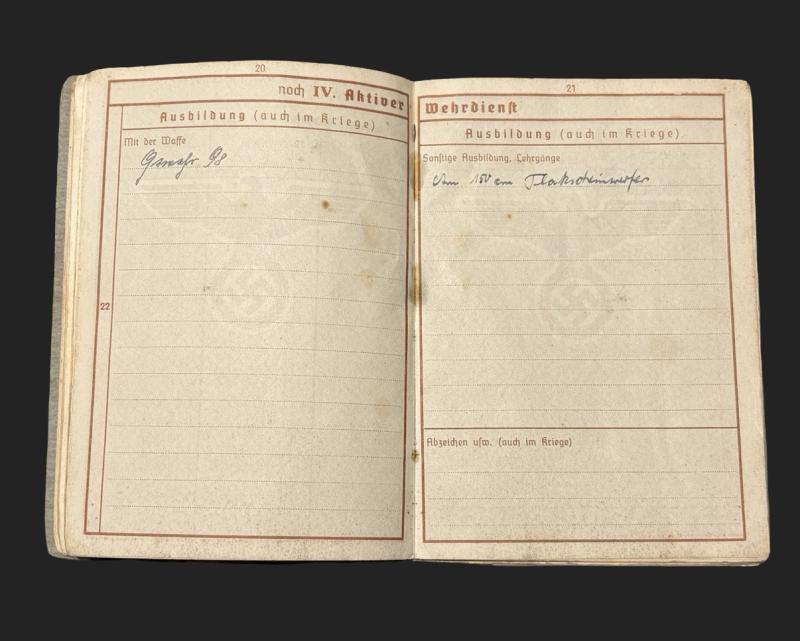 20
noch IV. Aktiver
Ausbildung (auch im Kriege)
Mit der Waffe
Gewehr 98
22
21
Wehrdienst
Ausbildung (auch im Kriege).
Sonstige Ausbildung, Lehrgänge
Am 150 cm Flakscheinwerfer
Abzeichen usw. (auch im Kriege)